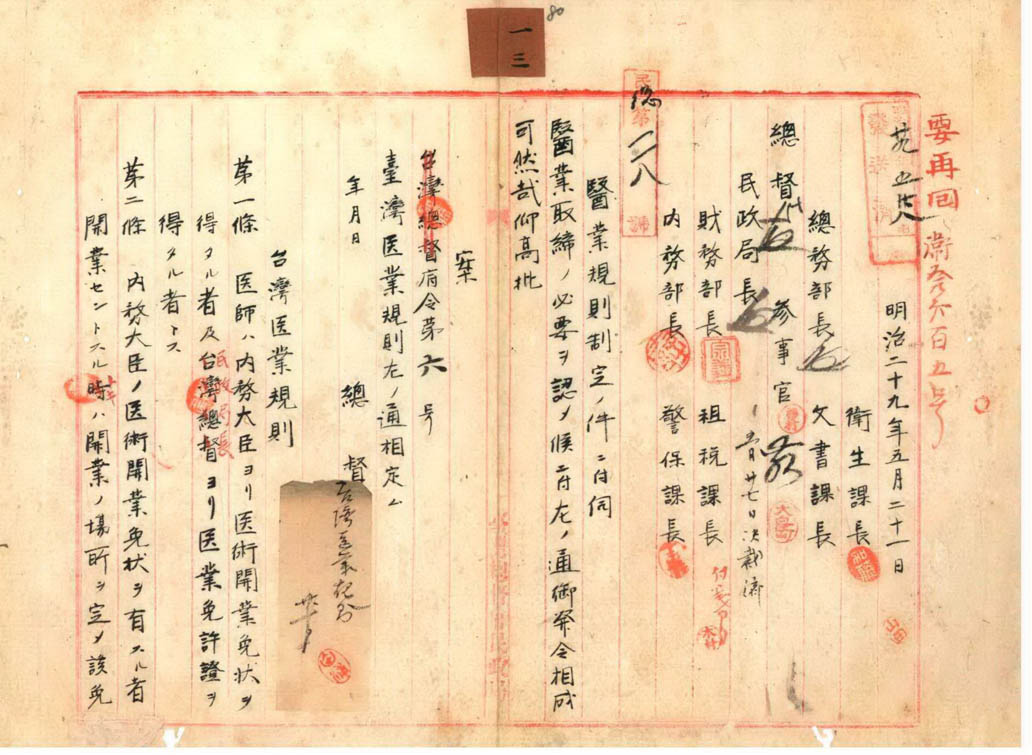 一三
80
要再回
衛
明治二十九年五月二十一日
衛生課長
總務部長
文書課長
總督
參事官
五月廿七日決裁濟
民政局長
財務部長
租税課長
内務部長
警保課長
民總第二八號
醫業規則制定ノ件ニ付伺
醫業取締ノ必要ヲ認メ候ニ付左ノ通御発令相成
可然哉仰高批
案
台灣總督府令第六号
臺灣医業規則左ノ通相定ム
年月日
總督
台灣医業規則
第一條 医師ハ内務大臣ヨリ医術開業免状ヲ
得タル者及台灣總督ヨリ医業免許證ヲ
民政局長
得タル者トス
第二條 内務大臣ノ医術開業免状ヲ有スル者
開業セントスル時ハ開業ノ場所ヲ定メ該免